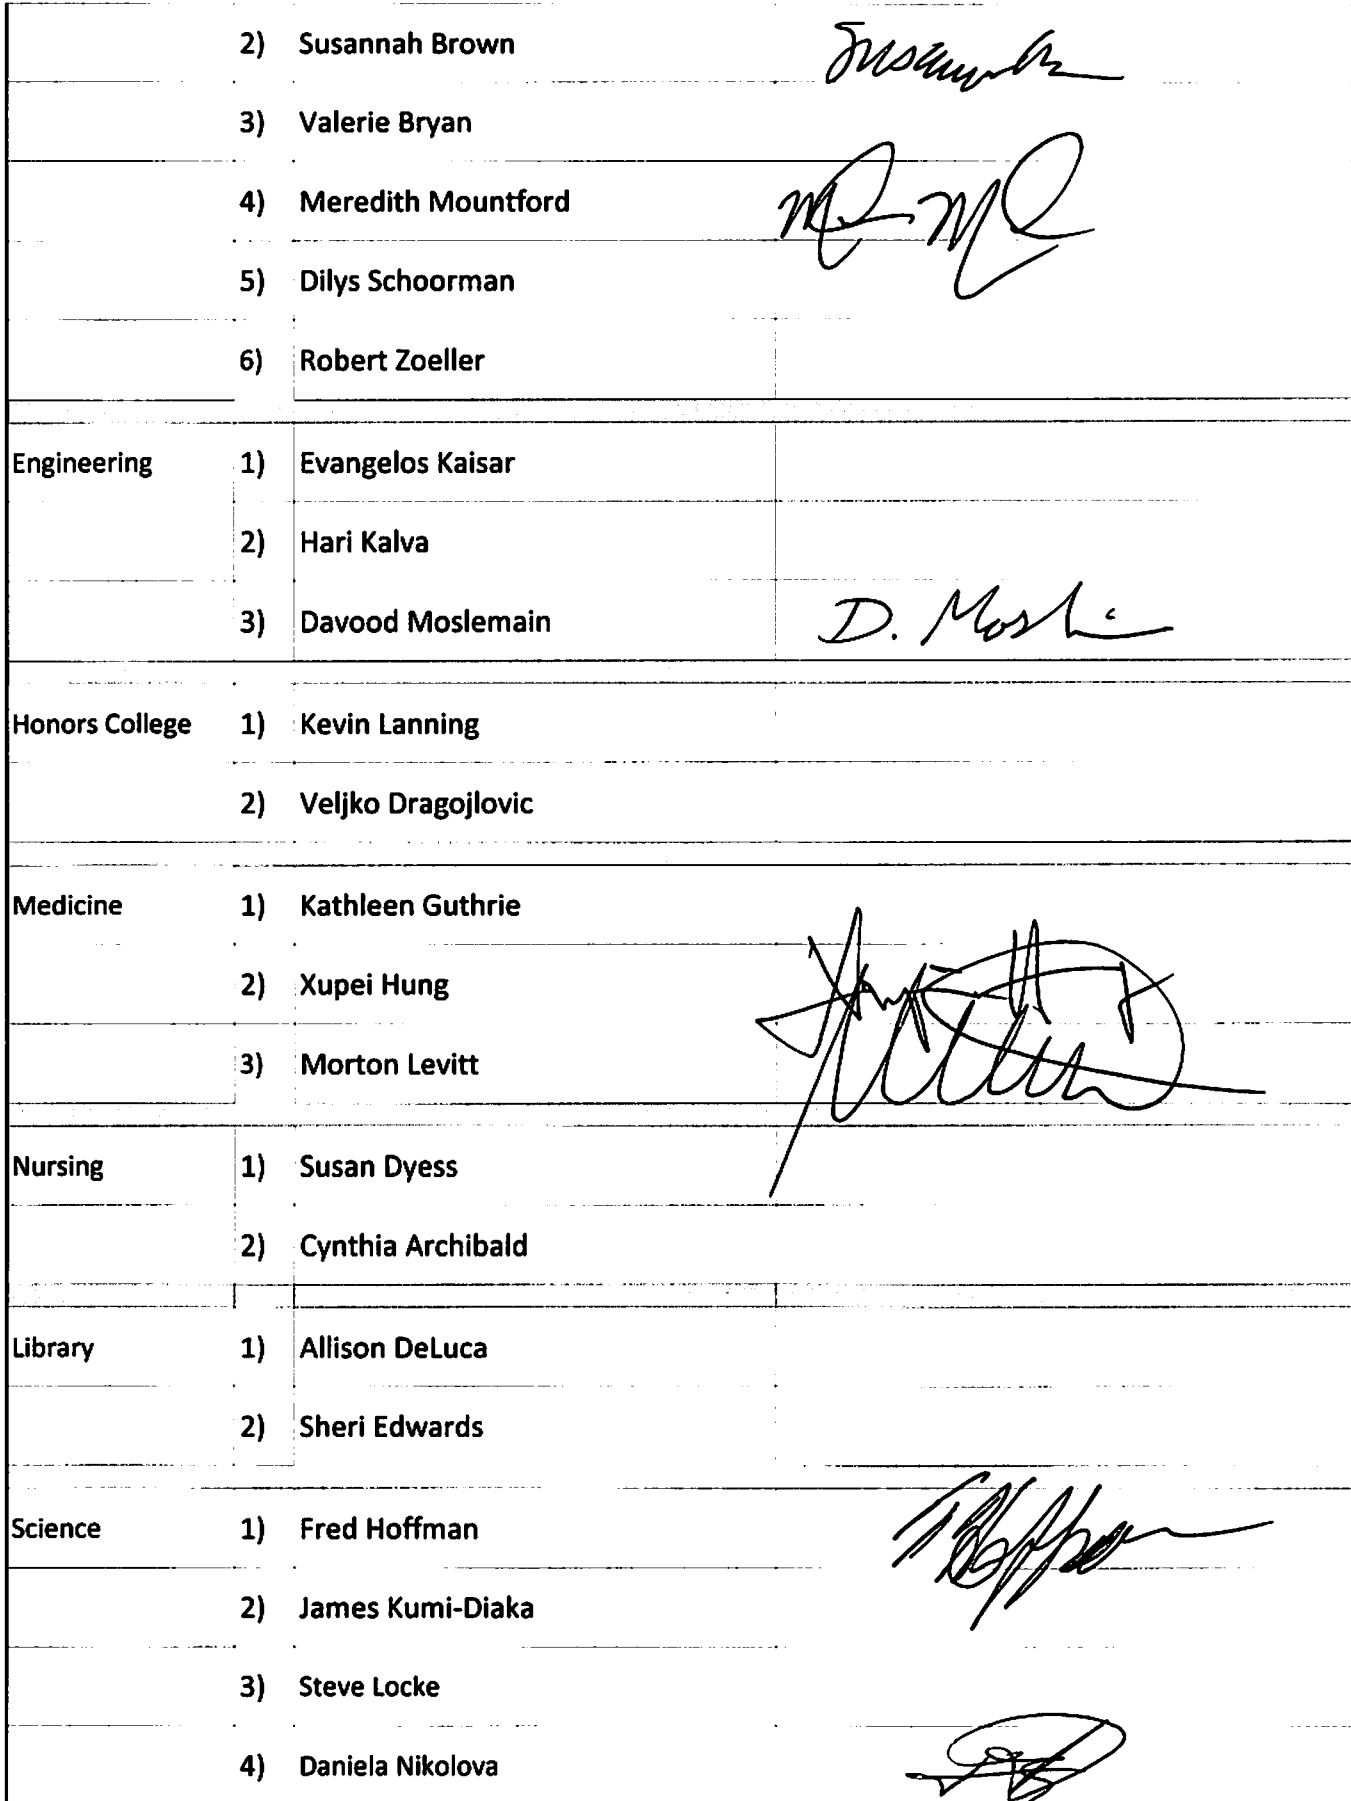 2) Susannah Brown
3) Valerie Bryan
4) Meredith Mountford
5) Dilys Schoorman
6) Robert Zoeller
Engineering 1) Evangelos Kaisar
2) Hari Kalva
3) Davood Moslemain D.
Honors College 1) Kevin Lanning
2) Veljko Dragojlovic
Medicine 1) Kathleen Guthrie
2) Xupei Hung
3) Morton Levitt
Nursing 1) Susan Dyess
2) Cynthia Archibald
Library 1) Allison DeLuca
2) Sheri Edwards
Science 1) Fred Hoffman
2) James Kumi-Diaka
3) Steve Locke
4) Daniela Nikolova